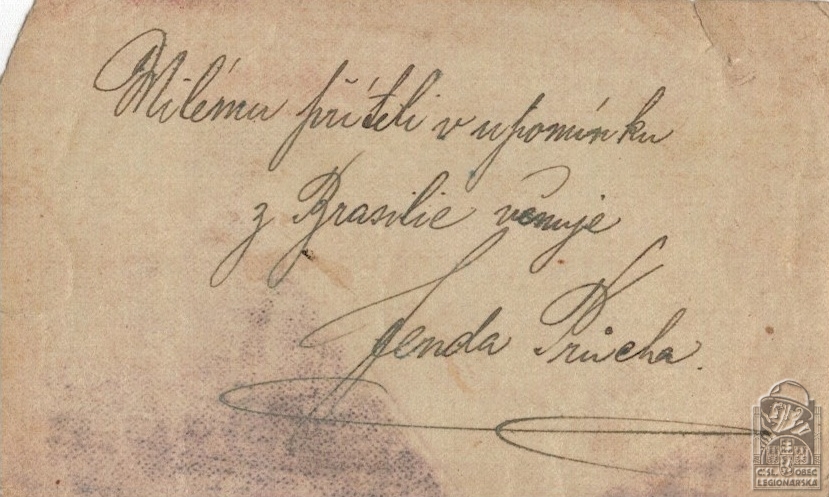 Milému příteli v upomínku
z Brasilie věnuje
Jenda Průcha.
Č.SL. OBEC
LEGIONÁŘSKÁ